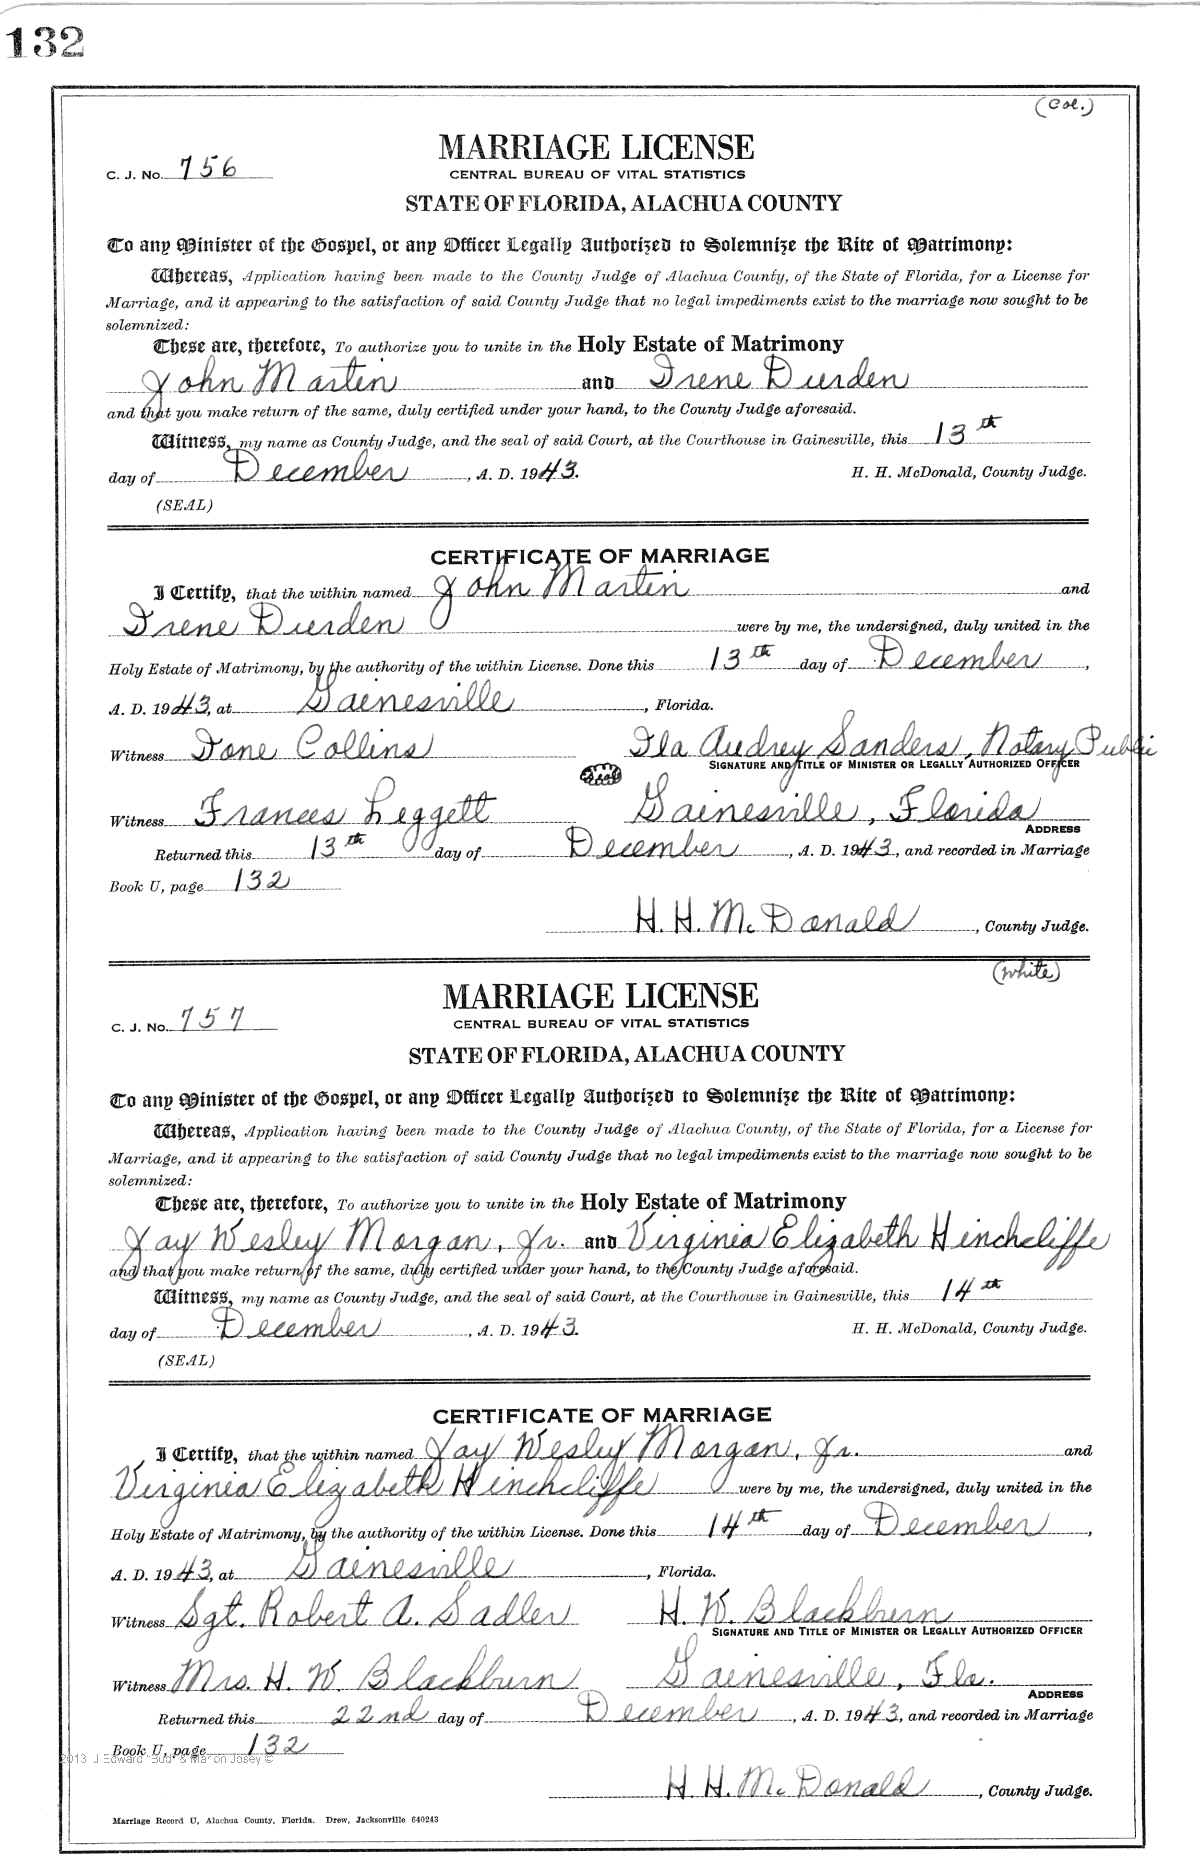 132
(Col.)
MARRIAGE LICENSE
C. J. No. 756
CENTRAL BUREAU OF VITAL STATISTICS
STATE OF FLORIDA, ALACHUA COUNTY
To any Minister of the Gospel, or any Officer Legally Authorized to Solemnize the Rite of Matrimony:
Whereas, Application having been made to the County Judge of Alachua County, of the State of Florida, for a License for
Marriage, and it appearing to the satisfaction of said County Judge that no legal impediments exist to the marriage now sought to be
solemnized:
These are, therefore, To authorize you to unite in the Holy Estate of Matrimony
John Martin and Irene Durden
and that you make return of the same, duly certified under your hand, to the County Judge aforesaid.
Witness, my name as County Judge, and the seal of said Court, at the Courthouse in Gainesville, this 13th
day of December, A. D. 1943. H. H. McDonald, County Judge.
(SEAL)
CERTIFICATE OF MARRIAGE
I Certify, that the within named John Martin and
Irene Durden were by me, the undersigned, duly united in the
Holy Estate of Matrimony, by the authority of the within License. Done this 13th day of December,
A. D. 1943, at Gainesville, Florida.
Witness Ione Collins Ila Audrey Sanders, Notary Public
SIGNATURE AND TITLE OF MINISTER OR LEGALLY AUTHORIZED OFFICER
Seal
Witness Frances Leggett Gainesville, Florida
ADDRESS
Returned this 13th day of December, A. D. 1943, and recorded in Marriage
Book U, page 132
H. H. McDonald, County Judge.
(White)
MARRIAGE LICENSE
C. J. No. 757
CENTRAL BUREAU OF VITAL STATISTICS
STATE OF FLORIDA, ALACHUA COUNTY
To any Minister of the Gospel, or any Officer Legally Authorized to Solemnize the Rite of Matrimony:
Whereas, Application having been made to the County Judge of Alachua County, of the State of Florida, for a License for
Marriage, and it appearing to the satisfaction of said County Judge that no legal impediments exist to the marriage now sought to be
solemnized:
These are, therefore, To authorize you to unite in the Holy Estate of Matrimony
Jay Wesley Morgan, Jr. and Virginia Elizabeth Hinchcliffe
and that you make return of the same, duly certified under your hand, to the County Judge aforesaid.
Witness, my name as County Judge, and the seal of said Court, at the Courthouse in Gainesville, this 14th
day of December, A. D. 1943. H. H. McDonald, County Judge.
(SEAL)
CERTIFICATE OF MARRIAGE
I Certify, that the within named Jay Wesley Morgan, Jr. and
Virginia Elizabeth Hinchcliffe were by me, the undersigned, duly united in the
Holy Estate of Matrimony, by the authority of the within License. Done this 14th day of December,
A. D. 1943, at Gainesville, Florida.
Witness Sgt. Robert A. Sadler H. W. Blackburn
SIGNATURE AND TITLE OF MINISTER OR LEGALLY AUTHORIZED OFFICER
Witness Mrs. H. W. Blackburn Gainesville, Fla.
ADDRESS
Returned this 22nd day of December, A. D. 1943, and recorded in Marriage
Book U, page 132
2013 J Edward "Bud" & Marion Josey ©
H. H. McDonald, County Judge.
Marriage Record U, Alachua County, Florida. Drew, Jacksonville 640243